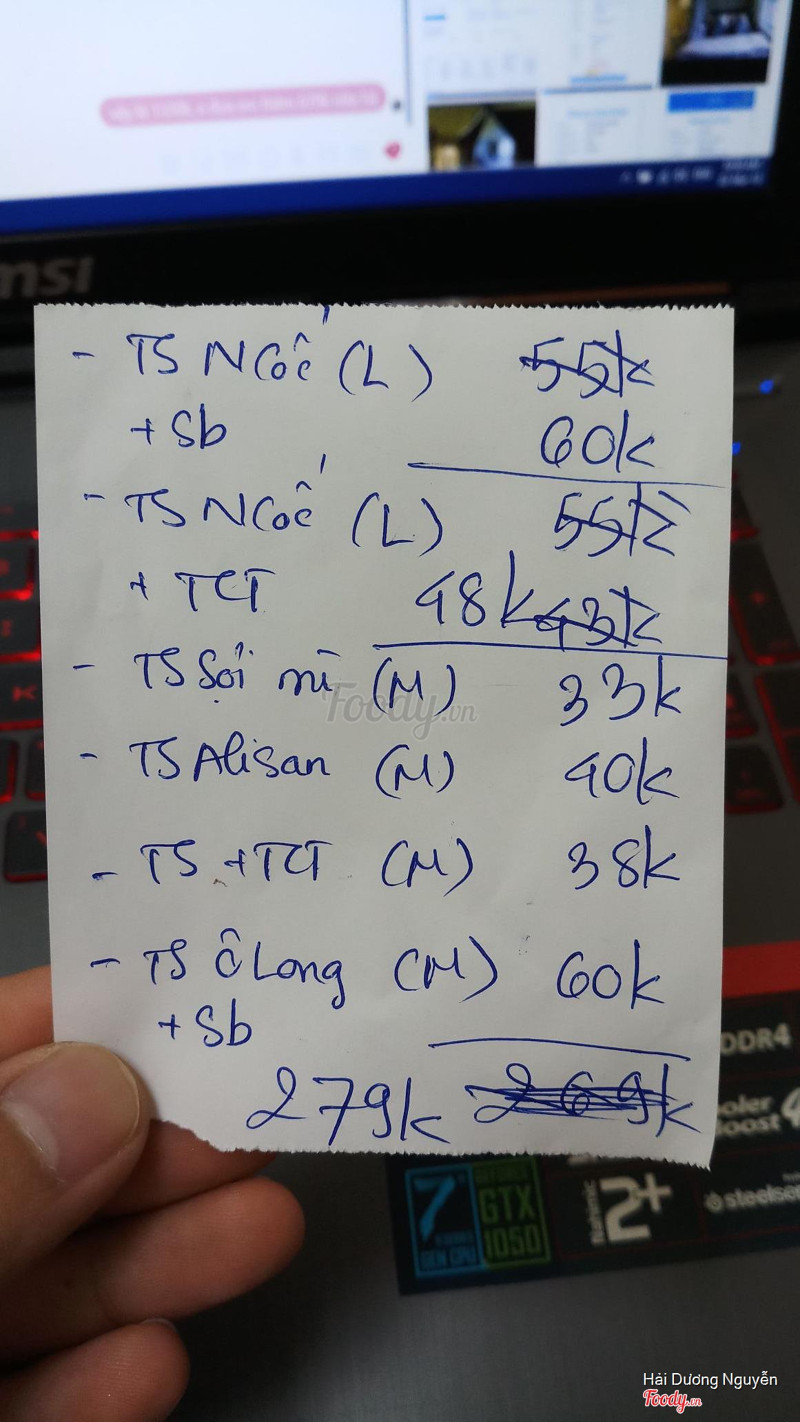 msi
- TS Ngốc (L) 55k
+ Sb 60k
- TS Ngốc (L) 55k
+ TCT 48k 43k
- TS Sợi mì (M) 33k
Foody.vn
- TS Alisan (M) 40k
- TS + TCT (M) 38k
- TS Ô Long (M) 60k
+ Sb
279k 269k
DDR4
GTX
1050
2+
steelseries
Hải Dương Nguyễn
Foody.vn